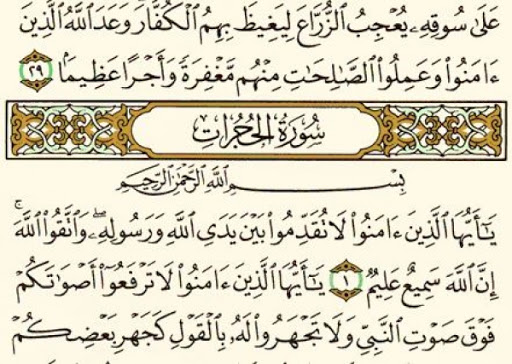 عَلَىٰ سُوقِهِۦ يُعْجِبُ ٱلزُّرَّاعَ لِيَغِيظَ بِهِمُ ٱلْكُفَّارَ وَعَدَ ٱللَّهُ ٱلَّذِينَ
ءَامَنُوا۟ وَعَمِلُوا۟ ٱلصَّٰلِحَٰتِ مِنْهُم مَّغْفِرَةً وَأَجْرًا عَظِيمًۢا ٢٩
سُورَةُ الحُجُرَاتِ
بِسْمِ ٱللَّهِ ٱلرَّحْمَٰنِ ٱلرَّحِيمِ
يَٰٓأَيُّهَا ٱلَّذِينَ ءَامَنُوا۟ لَا تُقَدِّمُوا۟ بَيْنَ يَدَىِ ٱللَّهِ وَرَسُولِهِۦۖ وَٱتَّقُوا۟ ٱللَّهَۚ
إِنَّ ٱللَّهَ سَمِيعٌ عَلِيمٌ ١ يَٰٓأَيُّهَا ٱلَّذِينَ ءَامَنُوا۟ لَا تَرْفَعُوٓا۟ أَصْوَٰتَكُمْ
فَوْقَ صَوْتِ ٱلنَّبِىِّ وَلَا تَجْهَرُوا۟ لَهُۥ بِٱلْقَوْلِ كَجَهْرِ بَعْضِكُمْ